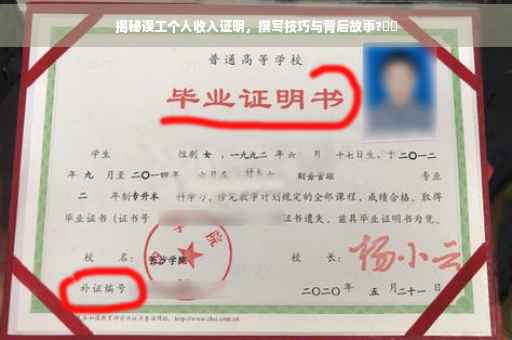 揭秘误工个人收入证明，撰写技巧与背后故事?
普通高等学校
毕业证明书
学生 性别 女，一九九二年 六 月 十七日生，于 二〇一二
年 九 月至 二〇一四 年 六月在 财务管理 专业
二 年制 专升本 科学习，修完教学计划规定的全部课程，成绩合格，取得
毕业证书（证书号 证书遗失，兹具毕业证明书为凭。
校 名： 长沙学院 校 长： 杨小云
补证编号 二〇二〇 年 五 月 二十一 日
http://www.chsi.com.cn